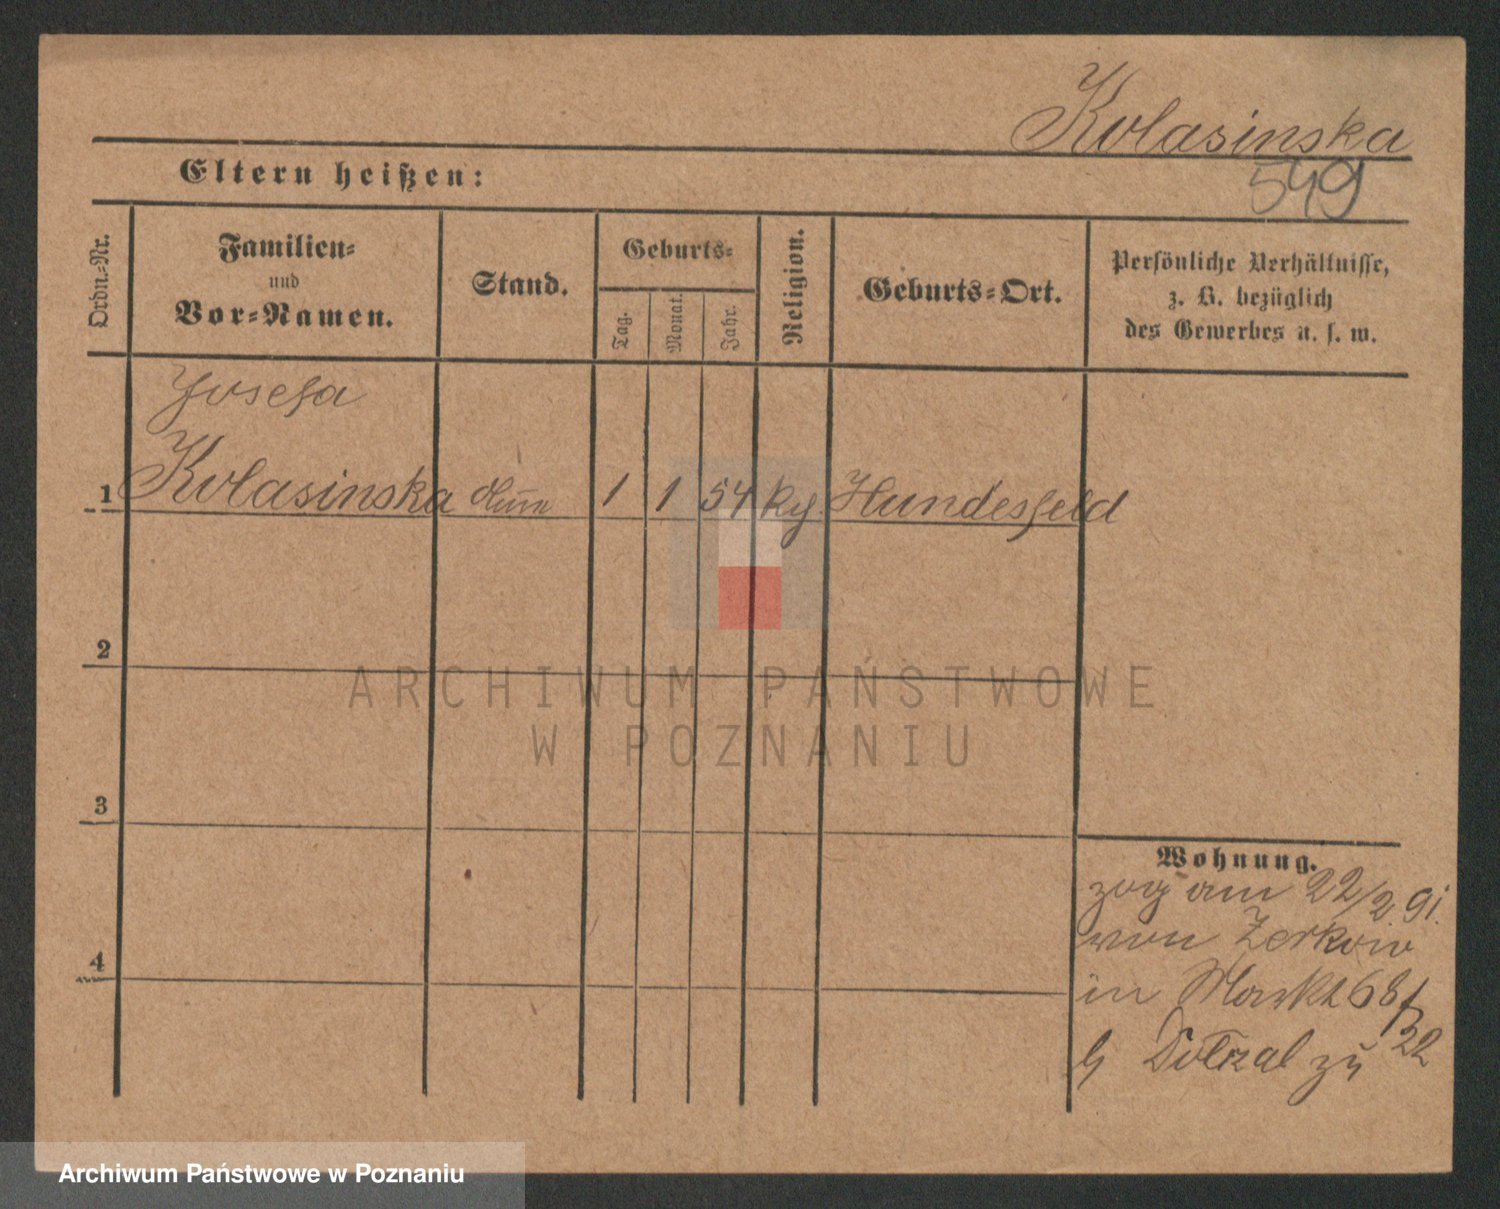 Kolasinska
Eltern heißen:
549
Ordn.-Nr.
Familien-
und
Vor-Namen.
Stand.
Geburts-
Tag.
Monat.
Jahr.
Religion.
Geburts-Ort.
Persönliche Verhältnisse,
z. B. bezüglich
des Gewerbes u. s. w.
Josefa
1 Kolasinska 1 1 54 Hundesfeld
2
ARCHIWUM PAŃSTWOWE
W POZNANIU
3
Wohnung.
zog am 22/2 91.
von Zerkow
in Markt 68/
22
4
zu
Archiwum Państwowe w Poznaniu